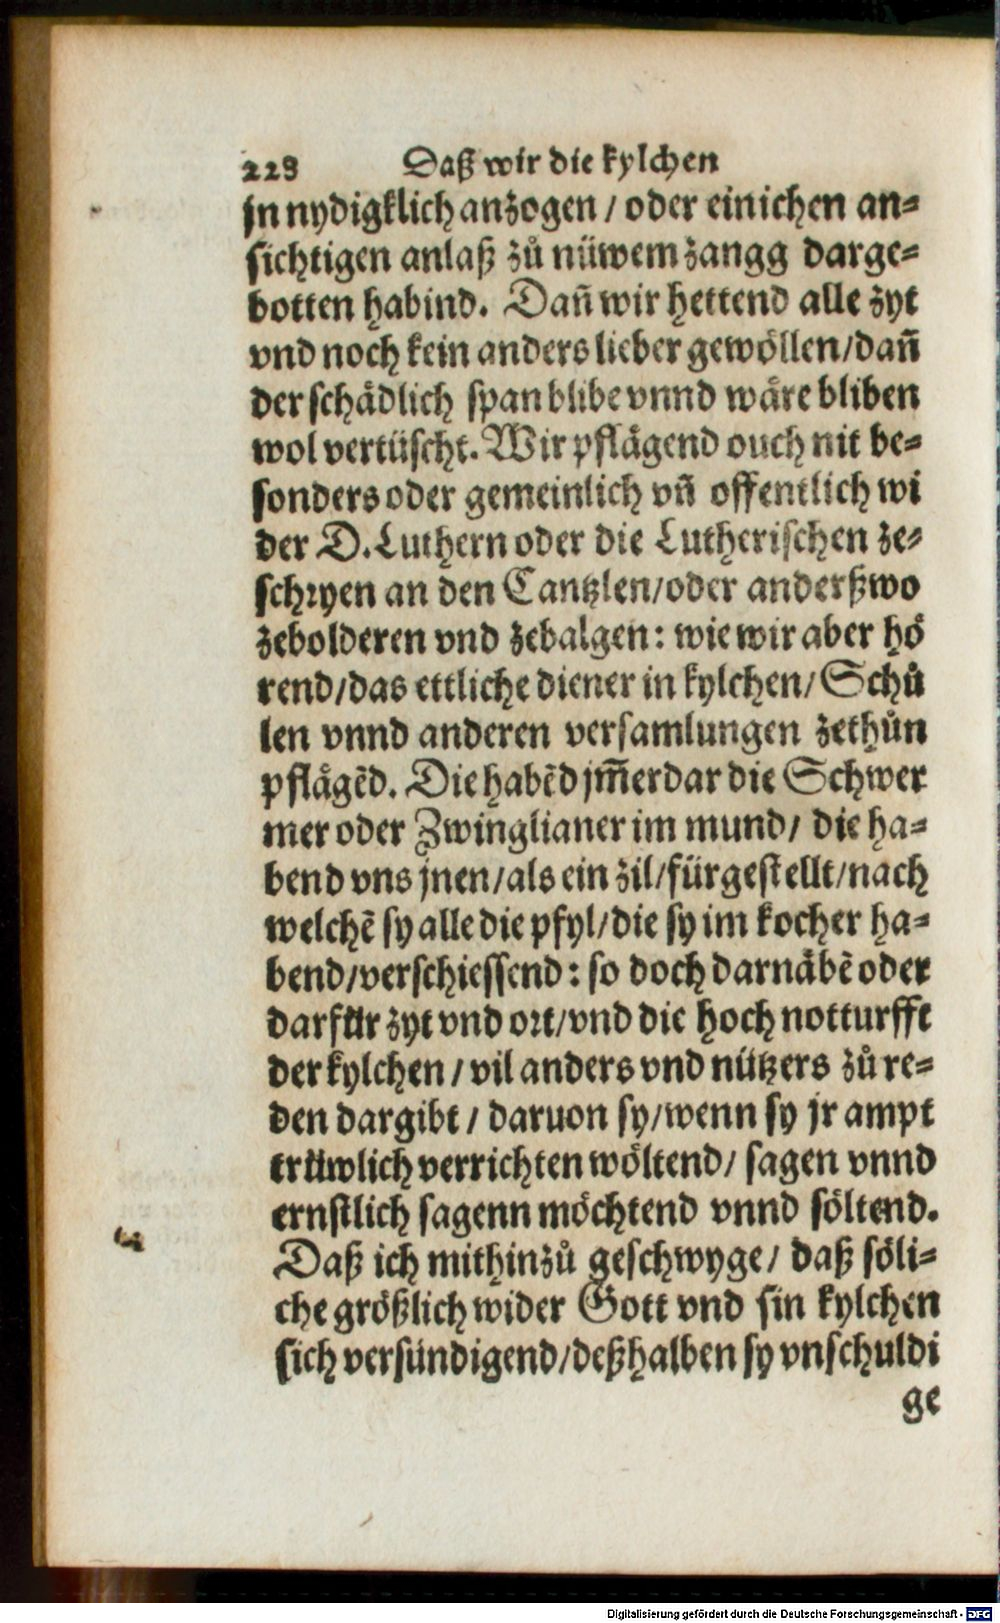 228 Daß wir die kylchen
jn nydigklich anzogen / oder einichen an-
sichtigen anlaß zů nüwem zangg darge-
botten habind. Dañ wir hettend alle zyt
vnd noch kein anders lieber gewöllen/dañ
der schädlich span blibe vnnd wäre bliben
wol vertüscht. Wir pflägend ouch nit be-
sonders oder gemeinlich vñ offentlich wi
der D. Luthern oder die Lutherischen ze-
schryen an den Cantzlen/oder anderßwo
zebolderen vnd zebalgen: wie wir aber hö
rend/das ettliche diener in kylchen/ Schů
len vnnd anderen versamlungen zethůn
pflägẽd. Die habẽd jm̃erdar die Schwer
mer oder Zwinglianer im mund/ die ha-
bend vns jnen/als ein zil/fürgestellt/nach
welchẽ sy alle die pfyl/die sy im kocher ha-
bend/verschiessend: so doch darnäbẽ oder
darfür zyt vnd ort/vnd die hoch notturfft
der kylchen / vil anders vnd nützers zů re-
den dargibt / daruon sy/wenn sy jr ampt
trüwlich verrichten wöltend/ sagen vnnd
ernstlich sagenn möchtend vnnd söltend.
Daß ich mithinzů geschwyge/ daß söli-
che größlich wider Gott vnd sin kylchen
sich versündigend/deßhalben sy vnschuldi
ge
Digitalisierung gefördert durch die Deutsche Forschungsgemeinschaft - DFG